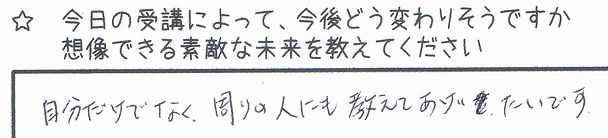 ☆ 今日の受講によって、今後どう変わりそうですか
想像できる素敵な未来を教えてください
自分だけでなく、周りの人にも教えてあげたいです。